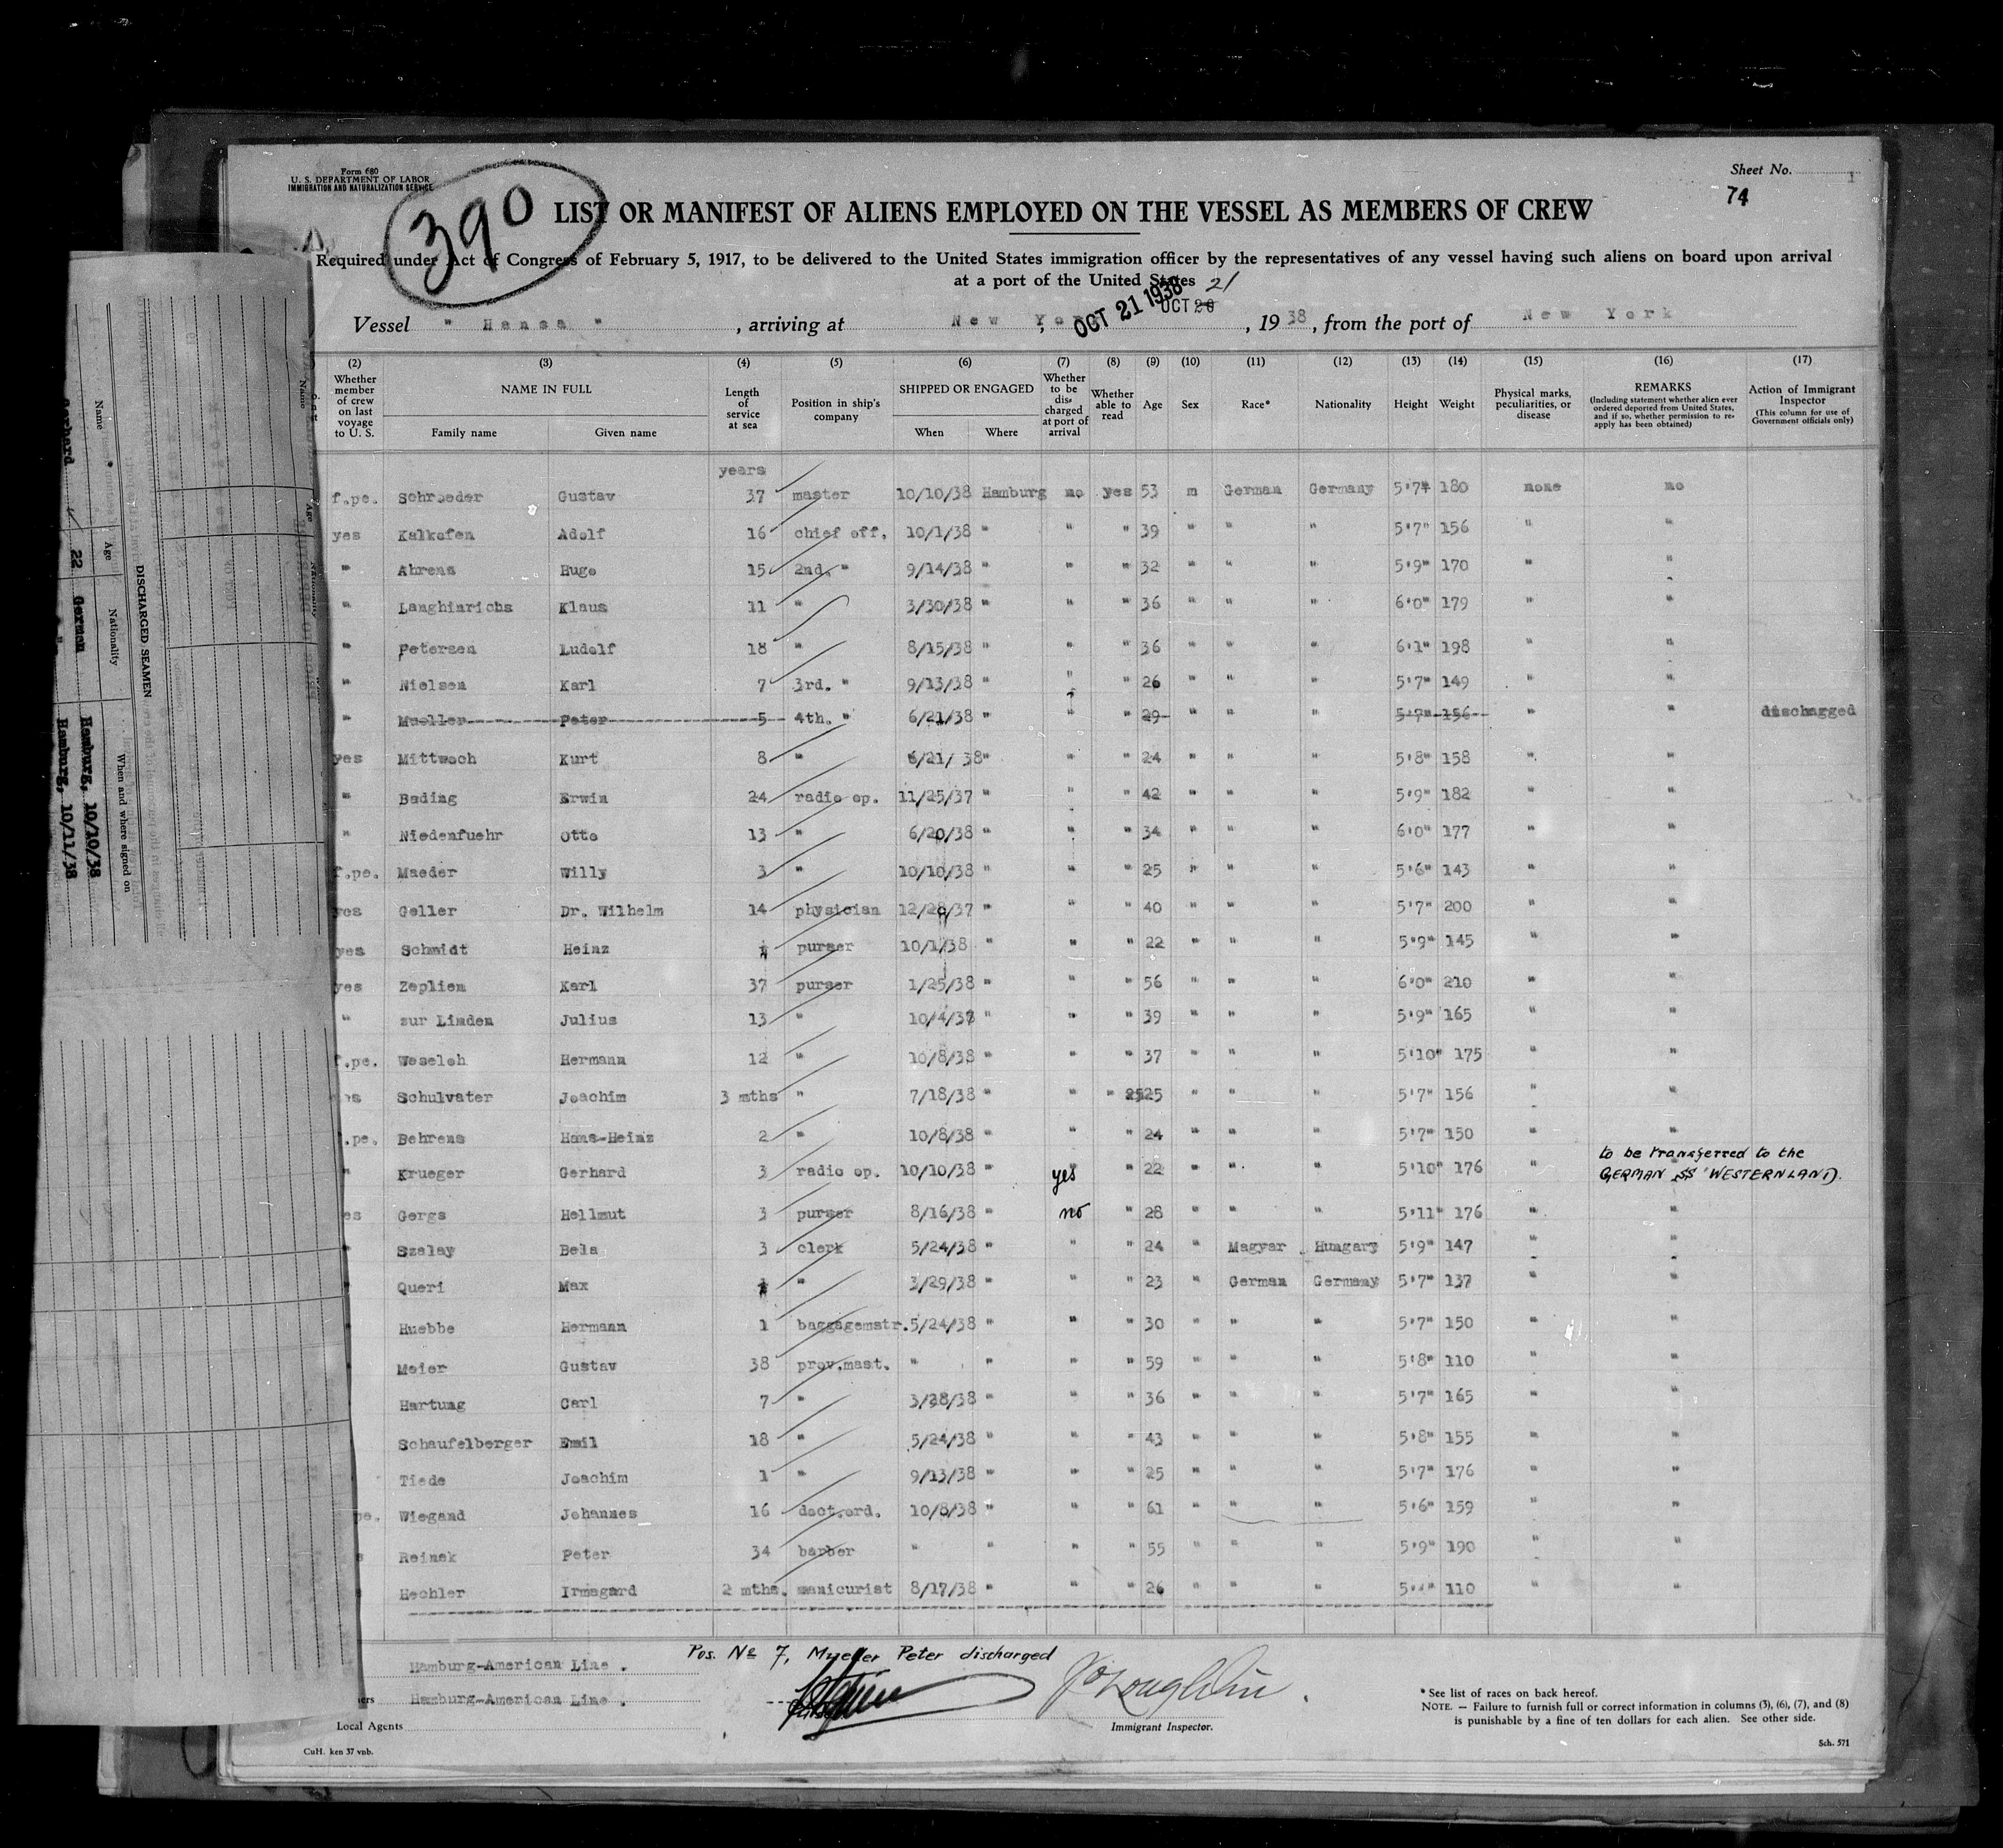 Form 680
U. S. DEPARTMENT OF LABOR
IMMIGRATION AND NATURALIZATION SERVICE
390
Sheet No. 1
74
LIST OR MANIFEST OF ALIENS EMPLOYED ON THE VESSEL AS MEMBERS OF CREW
Required under Act of Congress of February 5, 1917, to be delivered to the United States immigration officer by the representatives of any vessel having such aliens on board upon arrival
at a port of the United States
21
OCT 21 1938 OCT 20
Vessel " Hansa " , arriving at New York , 19 38 , from the port of New York
(2) (3) (4) (5) (6) (7) (8) (9) (10) (11) (12) (13) (14) (15) (16) (17)
Whether member of crew on last voyage to U. S. NAME IN FULL Family name Given name Length of service at sea Position in ship's company SHIPPED OR ENGAGED When Where Whether to be discharged at port of arrival Whether able to read Age Sex Race* Nationality Height Weight Physical marks, peculiarities, or disease REMARKS (Including statement whether alien ever ordered deported from United States, and if so, whether permission to reapply has been obtained) Action of Immigrant Inspector (This column for use of Government officials only)
years
f.pe. Schroeder Gustav 37 master 10/10/38 Hamburg no yes 53 m German Germany 5'7" 180 none no
yes Kalkofen Adolf 16 chief off. 10/1/38 " " " 39 " " " 5'7" 156 " "
" Ahrens Hugo 15 2nd. " 9/14/38 " " " 32 " " " 5'9" 170 " "
" Langhinrichs Klaus 11 " 3/30/38 " " " 36 " " " 6'0" 179 " "
" Petersen Ludolf 18 " 8/15/38 " " " 36 " " " 6'1" 198 " "
" Nielsen Karl 7 3rd. " 9/13/38 " " " 26 " " " 5'7" 149 " "
" Mueller Peter 5 4th. " 6/21/38 " " " 29 " " " 5'7" 156 " " dischagged
yes Mittwoch Kurt 8 " 6/21/ 38 " " " 24 " " " 5'8" 158 " "
" Bading Erwin 24 radio op. 11/25/37 " " " 42 " " " 5'9" 182 " "
" Niedenfuehr Otto 13 " 6/20/38 " " " 34 " " " 6'0" 177 " "
f.pe. Maeder Willy 3 " 10/10/38 " " " 25 " " " 5'6" 143 " "
yes Geller Dr. Wilhelm 14 physician 12/28/37 " " " 40 " " " 5'7" 200 " "
yes Schmidt Heinz purser 10/1/38 " " " 22 " " " 5'9" 145 " "
yes Zeplien Karl 37 purser 1/25/38 " " " 56 " " " 6'0" 210 " "
" zur Linden Julius 13 " 10/4/38 " " " 39 " " " 5'9" 165 " "
f.pe. Weseloh Hermann 12 " 10/8/38 " " " 37 " " " 5'10" 175 " "
es Schulvater Joachim 3 mths " 7/18/38 " " " 25 " " " 5'7" 156 " "
.pe. Behrens Hans-Heinz 2 " 10/8/38 " " " 24 " " " 5'7" 150 " "
" Krueger Gerhard 3 radio op. 10/10/38 " yes " 22 " " " 5'10" 176 " to be transferred to the
GERMAN SS 'WESTERNLAND).
es Gergs Hellmut 3 purser 8/16/38 " no " 28 " " " 5'11" 176 " "
" Szalay Bela 3 clerk 5/24/38 " " " 24 " Magyar Hungary 5'9" 147 " "
Queri Max " 3/29/38 " " " 23 " German Germany 5'7" 137 " "
Huebbe Hermann 1 baggagemstr. 5/24/38 " " " 30 " " " 5'7" 150 " "
Meier Gustav 38 prov.mast. " " " " 59 " " " 5'8" 110 " "
Hartung Carl 7 " 3/28/38 " " " 36 " " " 5'7" 165 " "
Schaufelberger Emil 18 " 5/24/38 " " " 43 " " " 5'8" 155 " "
Tiede Joachim 1 " 9/13/38 " " " 25 " " " 5'7" 176 " "
pe. Wiegand Johannes 16 doct.ord. 10/8/38 " " " 61 " " " 5'6" 159 " "
s Reinek Peter 34 barber " " " " 55 " " " 5'9" 190 " "
Hechler Irmagard 2 mths. manicurist 8/17/38 " " " 26 " " " 110 " "
Pos. No 7, Mueller Peter discharged
Hamburg-American Line .
ers Hamburg-American Line .
Local Agents
Immigrant Inspector.
* See list of races on back hereof.
NOTE. — Failure to furnish full or correct information in columns (3), (6), (7), and (8)
is punishable by a fine of ten dollars for each alien. See other side.
CuH. ken 37 vnb.
Sch. 571
DISCHARGED SEAMEN
Name Age Nationality When and where signed on
22 German Hamburg, 10/10/38
" Hamburg, 10/11/38